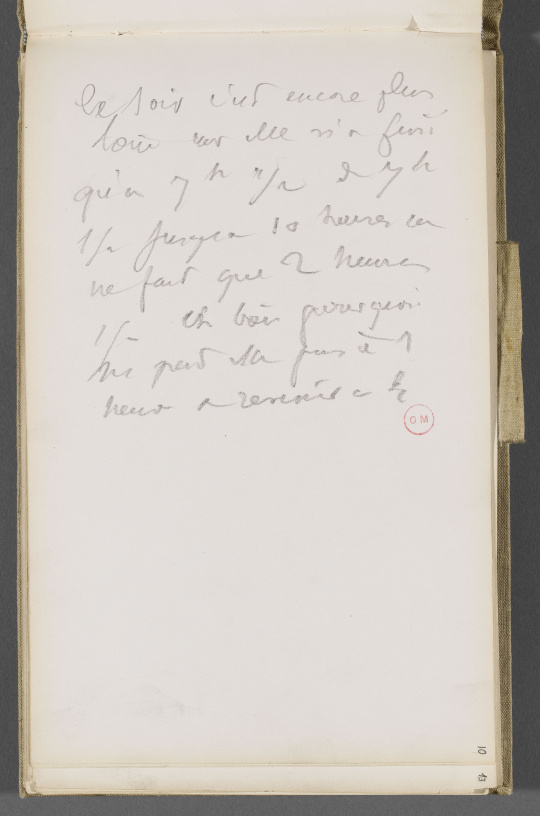 le soir c'est encore plus
loin car elle n'a fini
qu'à 7 h 1/2 de 7 h
1/2 jusqu'à 10 heures ça
ne fait que 2 heures
1/2 eh bien pourquoi
ne part elle pas à 1
heure a revenir a
OM
10